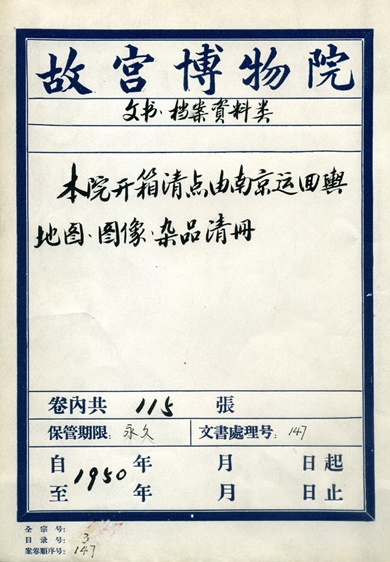 故宫博物院
文书·档案資料类
本院开箱清点由南京运回輿
地图·图像·杂品清冊
卷內共 115 張
保管期限: 永久 文書處理号: 147
自 1950 年 月 日起
至 年 月 日止
全宗号:
目录号: 3
案卷順序号: 147